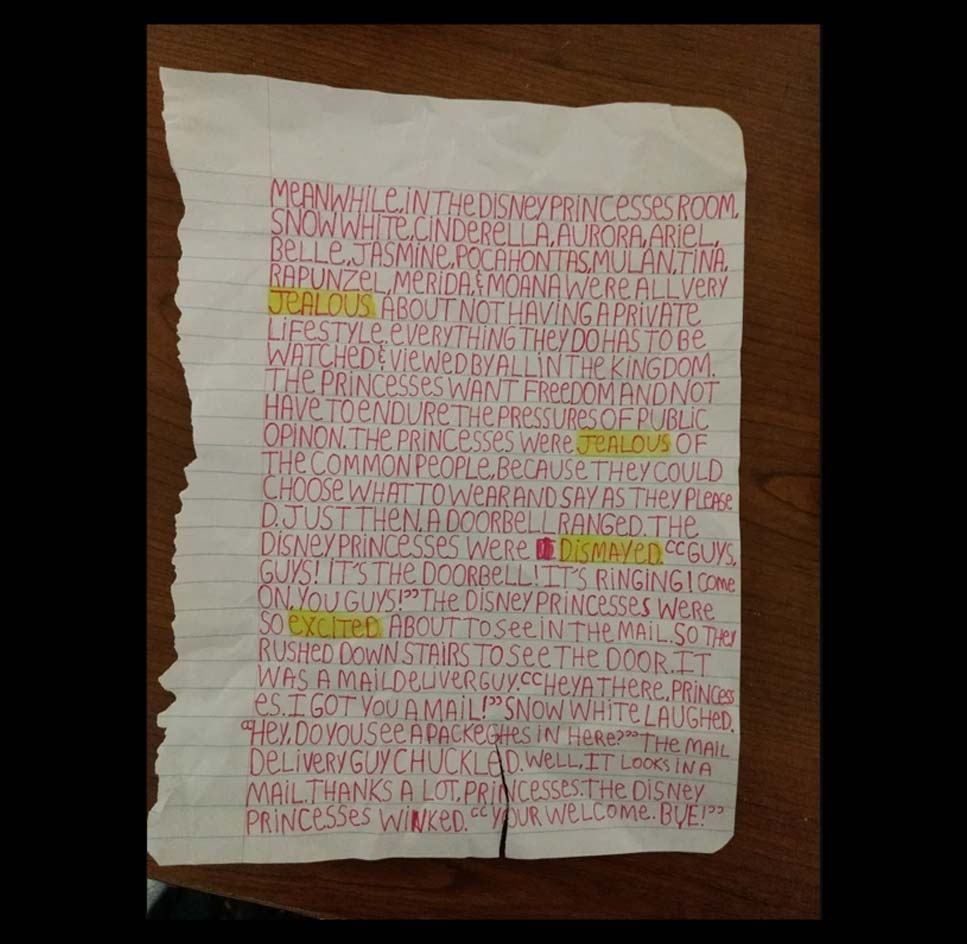 MEANWHILE, IN THE DISNEY PRINCESSES ROOM,
SNOW WHITE, CINDERELLA, AURORA, ARIEL,
BELLE, JASMINE, POCAHONTAS, MULAN, TINA,
RAPUNZEL, MERIDA, & MOANA WERE ALL VERY
JEALOUS ABOUT NOT HAVING A PRIVATE
LIFESTYLE. EVERYTHING THEY DO HAS TO BE
WATCHED & VIEWED BY ALL IN THE KINGDOM.
THE PRINCESSES WANT FREEDOM AND NOT
HAVE TO ENDURE THE PRESSURES OF PUBLIC
OPINON. THE PRINCESSES WERE JEALOUS OF
THE COMMON PEOPLE, BECAUSE THEY COULD
CHOOSE WHAT TO WEAR AND SAY AS THEY PLEASE
D. JUST THEN, A DOORBELL RANGED. THE
DISNEY PRINCESSES WERE DISMAYED. “GUYS,
GUYS! IT'S THE DOORBELL! IT'S RINGING! COME
ON, YOU GUYS!” THE DISNEY PRINCESSES WERE
SO EXCITED ABOUT TO SEE IN THE MAIL. SO THEY
RUSHED DOWN STAIRS TO SEE THE DOOR. IT
WAS A MAIL DELIVER GUY. “HEYA THERE, PRINCESS
ES. I GOT YOU A MAIL!” SNOW WHITE LAUGHED.
“HEY, DO YOU SEE A PACKEGHES IN HERE?” THE MAIL
DELIVERY GUY CHUCKLED. WELL, IT LOOKS IN A
MAIL. THANKS A LOT, PRINCESSES. THE DISNEY
PRINCESSES WINKED. “YOUR WELCOME. BYE!”